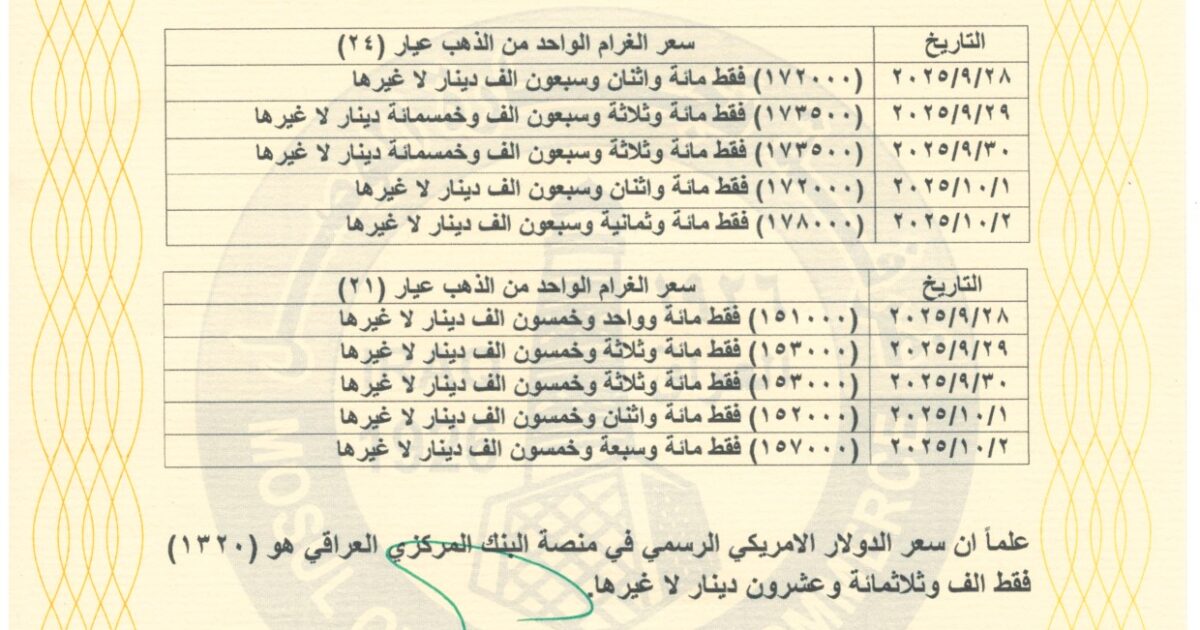 التاريخ سعر الغرام الواحد من الذهب عيار (٢٤)
٢٠٢٥/٩/٢٨ (١٧٢٠٠٠) فقط مائة واثنان وسبعون الف دينار لا غيرها
٢٠٢٥/٩/٢٩ (١٧٣٥٠٠) فقط مائة وثلاثة وسبعون الف وخمسمائة دينار لا غيرها
٢٠٢٥/٩/٣٠ (١٧٣٥٠٠) فقط مائة وثلاثة وسبعون الف وخمسمائة دينار لا غيرها
٢٠٢٥/١٠/١ (١٧٢٠٠٠) فقط مائة واثنان وسبعون الف دينار لا غيرها
٢٠٢٥/١٠/٢ (١٧٨٠٠٠) فقط مائة وثمانية وسبعون الف دينار لا غيرها
التاريخ سعر الغرام الواحد من الذهب عيار (٢١)
٢٠٢٥/٩/٢٨ (١٥١٠٠٠) فقط مائة وواحد وخمسون الف دينار لا غيرها
٢٠٢٥/٩/٢٩ (١٥٣٠٠٠) فقط مائة وثلاثة وخمسون الف دينار لا غيرها
٢٠٢٥/٩/٣٠ (١٥٣٠٠٠) فقط مائة وثلاثة وخمسون الف دينار لا غيرها
٢٠٢٥/١٠/١ (١٥٢٠٠٠) فقط مائة واثنان وخمسون الف دينار لا غيرها
٢٠٢٥/١٠/٢ (١٥٧٠٠٠) فقط مائة وسبعة وخمسون الف دينار لا غيرها
علماً ان سعر الدولار الامريكي الرسمي في منصة البنك المركزي العراقي هو (١٣٢٠)
فقط الف وثلاثمائة وعشرون دينار لا غيرها.
MOSUL